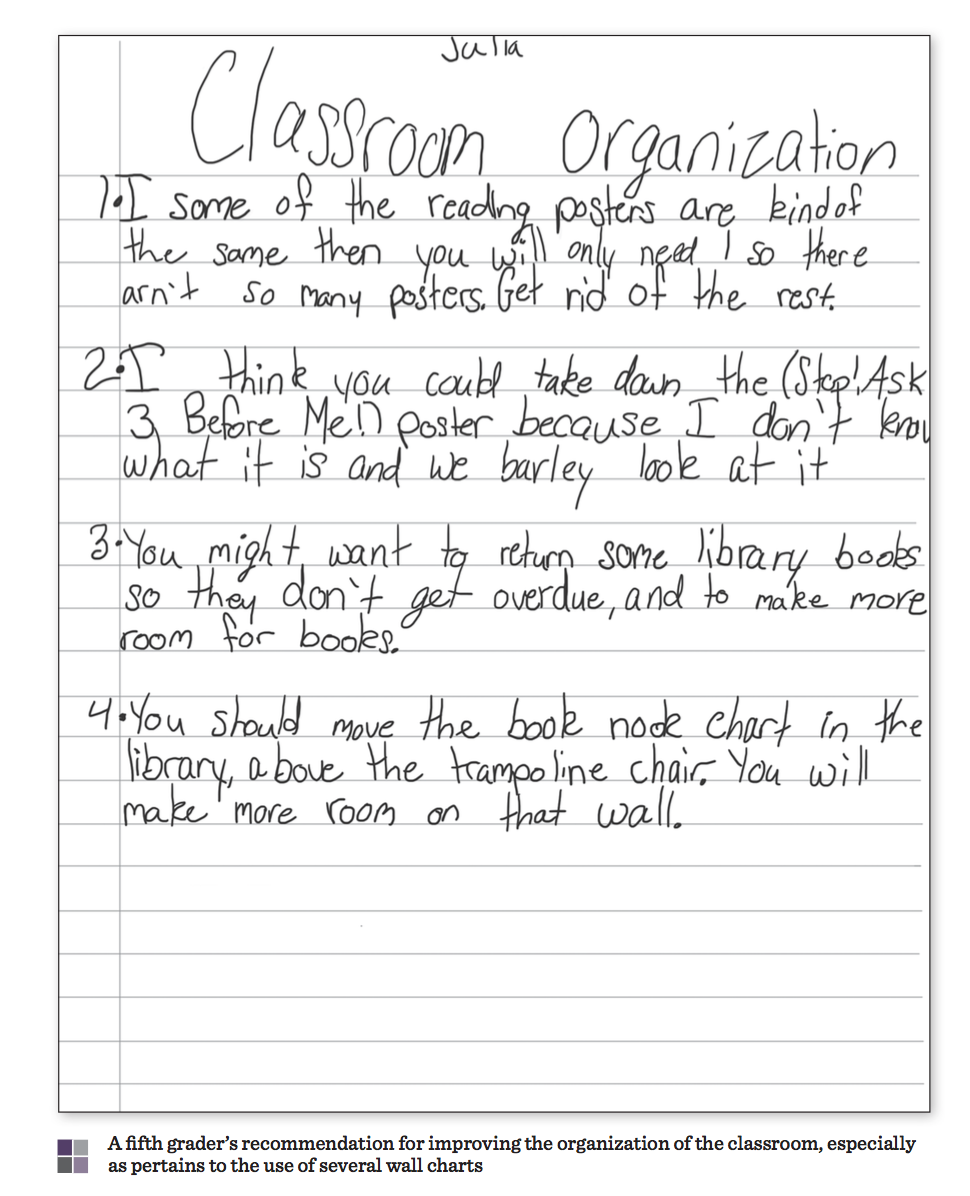 Julia
Classroom Organization
1. I some of the reading posters are kind of
the same then you will only need 1 so there
arn't so many posters. Get rid of the rest.
2. I think you could take down the (Stop! Ask
3 Before Me!) poster because I don't know
what it is and we barley look at it
3. You might want to return some library books
so they don't get overdue, and to make more
room for books.
4. You should move the book nook chart in the
library, above the trampoline chair. You will
make more room on that wall.
A fifth grader's recommendation for improving the organization of the classroom, especially
as pertains to the use of several wall charts